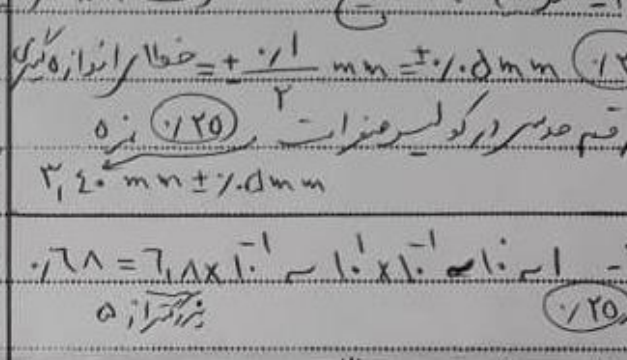 خطا اندازه گیری = ± ۰/۱ / ۲ mm = ± ۰/۰۵ mm
رقم حدسی در کولیس صفر است ۰/۲۵
۳/۴۰ mm ± ۰/۰۵ mm
۰/۶۸ = ۶/۸ × ۱۰^-۱ ~ ۱۰^۱ × ۱۰^-۱ ~ ۱۰^۰ ~ ۱ -
بزرگتر از ۵ ۰/۲۵